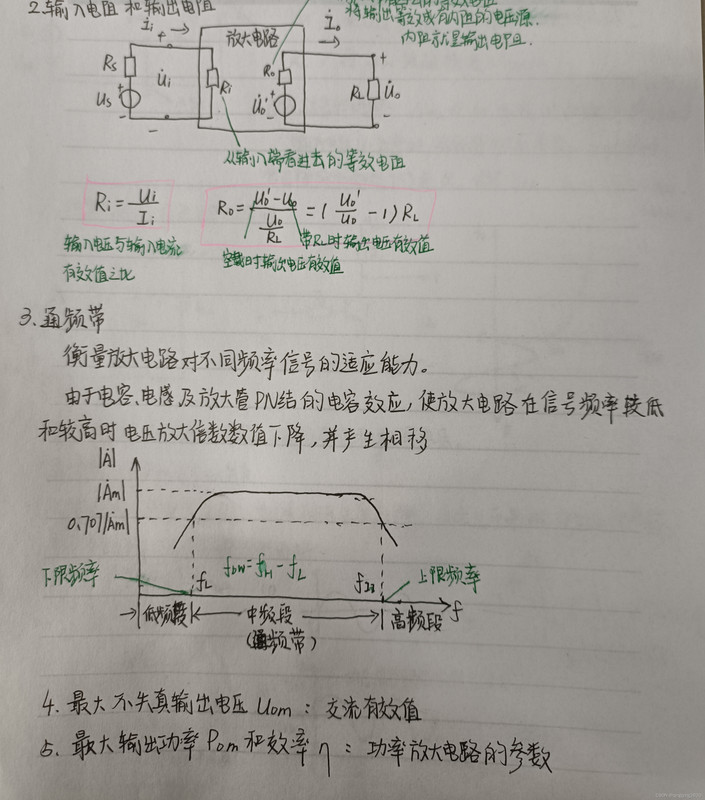 2.输入电阻和输出电阻
将输出等效成有内阻的电压源,
内阻就是输出电阻.
İi →
放大电路
İo →
Rs
U̇i
Ri
Ro
RL
U̇o
Us
U̇o'
从输入端看进去的等效电阻
Ri = Ui / Ii
Ro = (Uo' - Uo) / (Uo / RL) = (Uo' / Uo - 1) RL
输入电压与输入电流
有效值之比
带RL时输出电压有效值
空载时输出电压有效值
3.通频带
衡量放大电路对不同频率信号的适应能力。
由于电容、电感及放大管PN结的电容效应,使放大电路在信号频率较低
和较高时电压放大倍数数值下降,并产生相移
|Ȧ|
|Ȧm|
0.707|Ȧm|
下限频率
fL
fbw=fH-fL
上限频率
f
低频段
中频段
高频段
(通频带)
4.最大不失真输出电压Uom:交流有效值
5.最大输出功率Pom和效率η:功率放大电路的参数